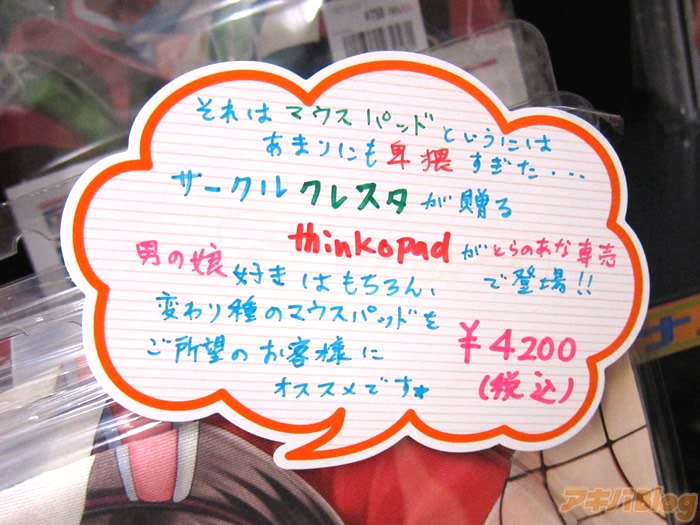 それはマウスパッドというには
あまりにも卑猥すぎた...
サークルクレスタが贈る
thinkopadがとらのあな専売
で登場!!
男の娘好きはもちろん、
変わり種のマウスパッドを
ご所望のお客様に
オススメです★
¥4200
(税込)
アキバBlog